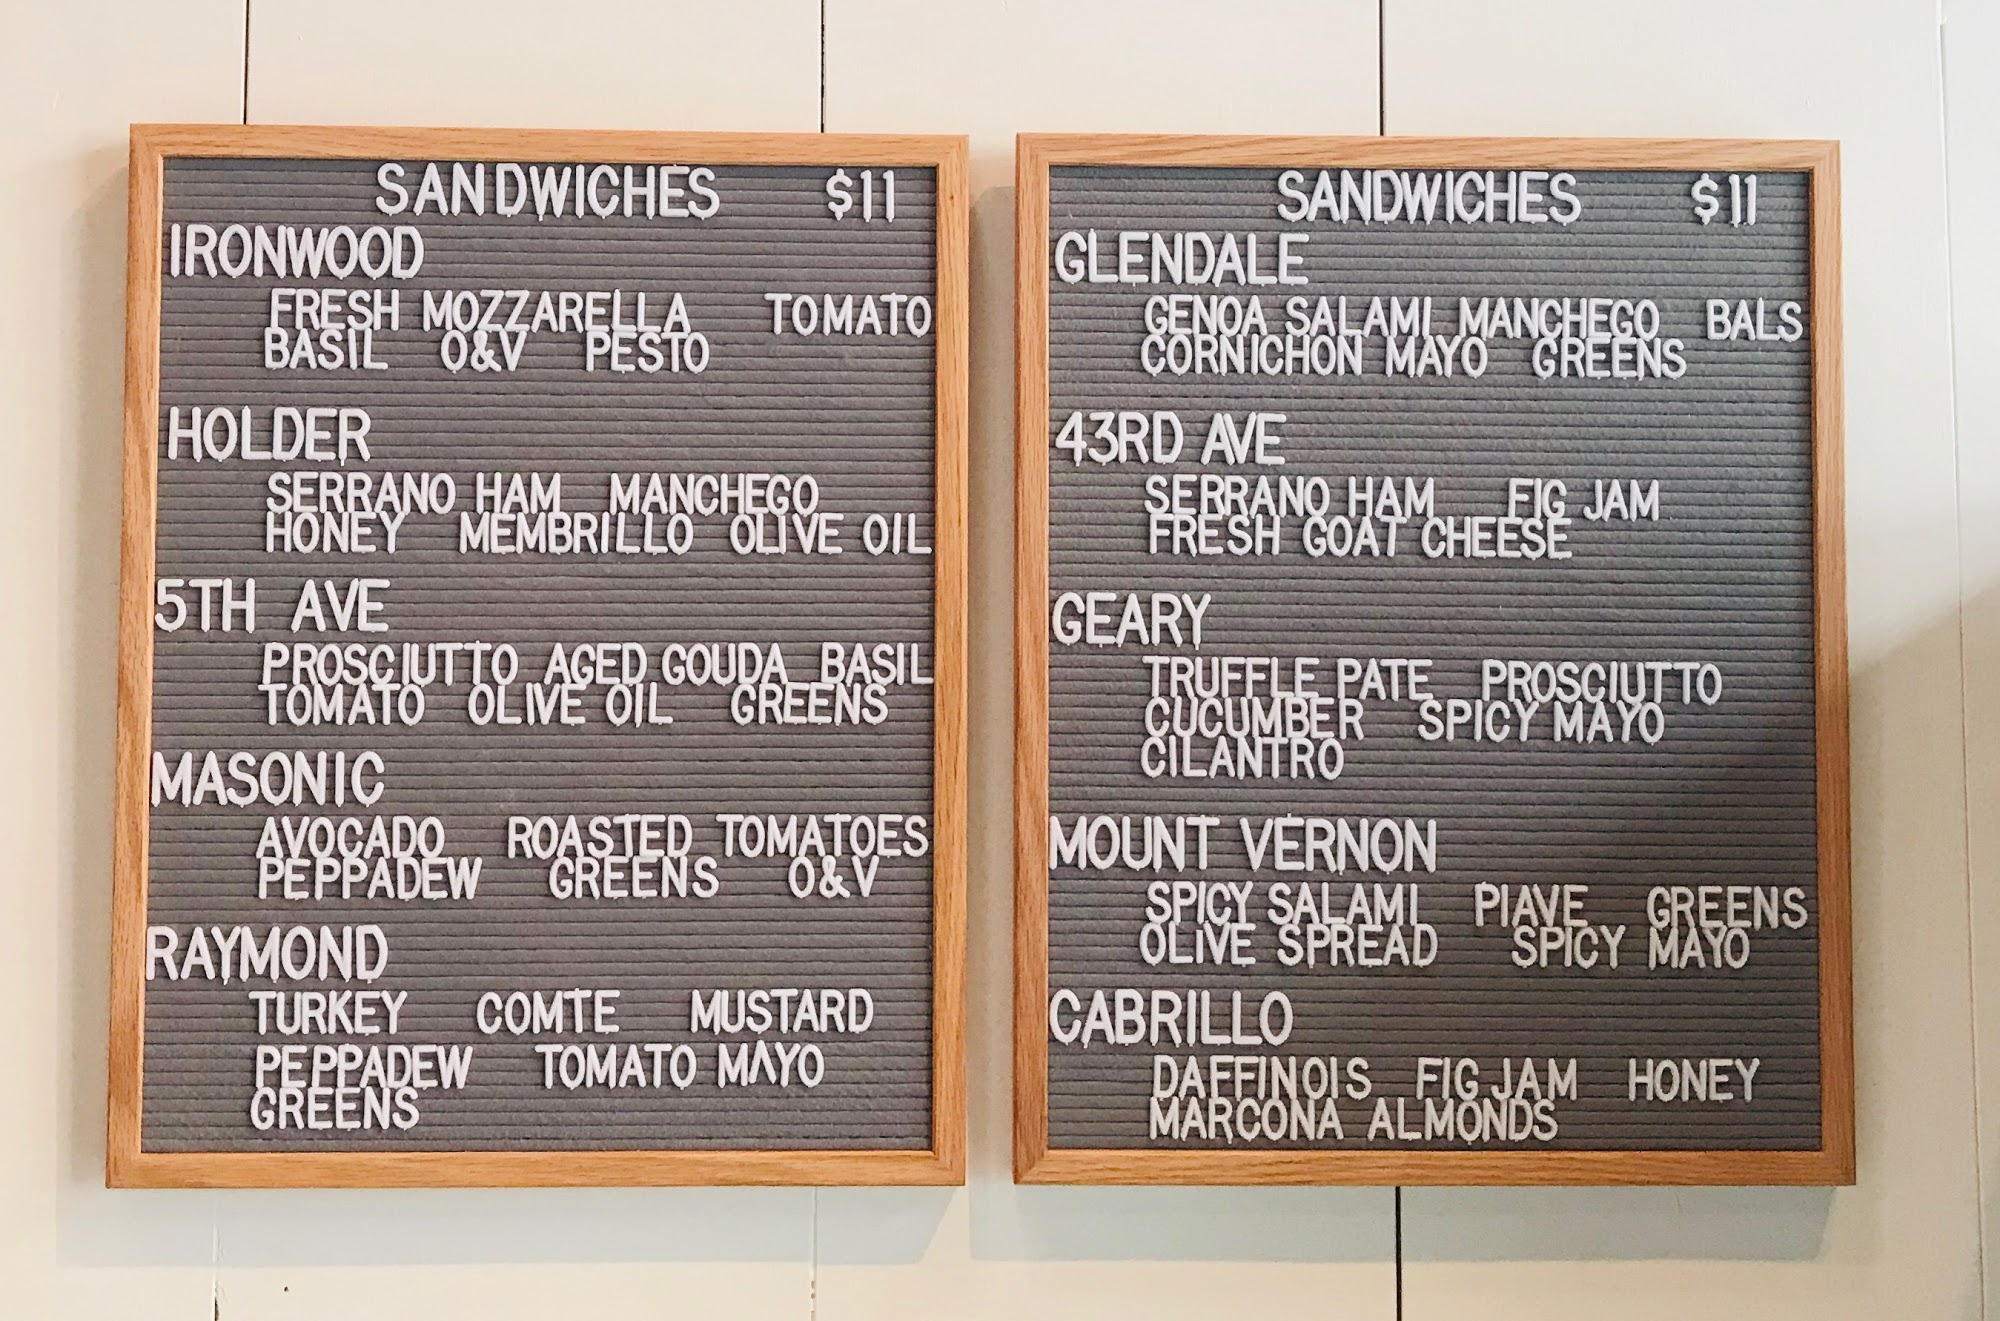 SANDWICHES $11
IRONWOOD
FRESH MOZZARELLA TOMATO
BASIL O&V PESTO
HOLDER
SERRANO HAM MANCHEGO
HONEY MEMBRILLO OLIVE OIL
5TH AVE
PROSCIUTTO AGED GOUDA BASIL
TOMATO OLIVE OIL GREENS
MASONIC
AVOCADO ROASTED TOMATOES
PEPPADEW GREENS O&V
RAYMOND
TURKEY COMTE MUSTARD
PEPPADEW TOMATO MAYO
GREENS
SANDWICHES $11
GLENDALE
GENOA SALAMI MANCHEGO BALS
CORNICHON MAYO GREENS
43RD AVE
SERRANO HAM FIG JAM
FRESH GOAT CHEESE
GEARY
TRUFFLE PATE PROSCIUTTO
CUCUMBER SPICY MAYO
CILANTRO
MOUNT VERNON
SPICY SALAMI PIAVE GREENS
OLIVE SPREAD SPICY MAYO
CABRILLO
DAFFINOIS FIG JAM HONEY
MARCONA ALMONDS